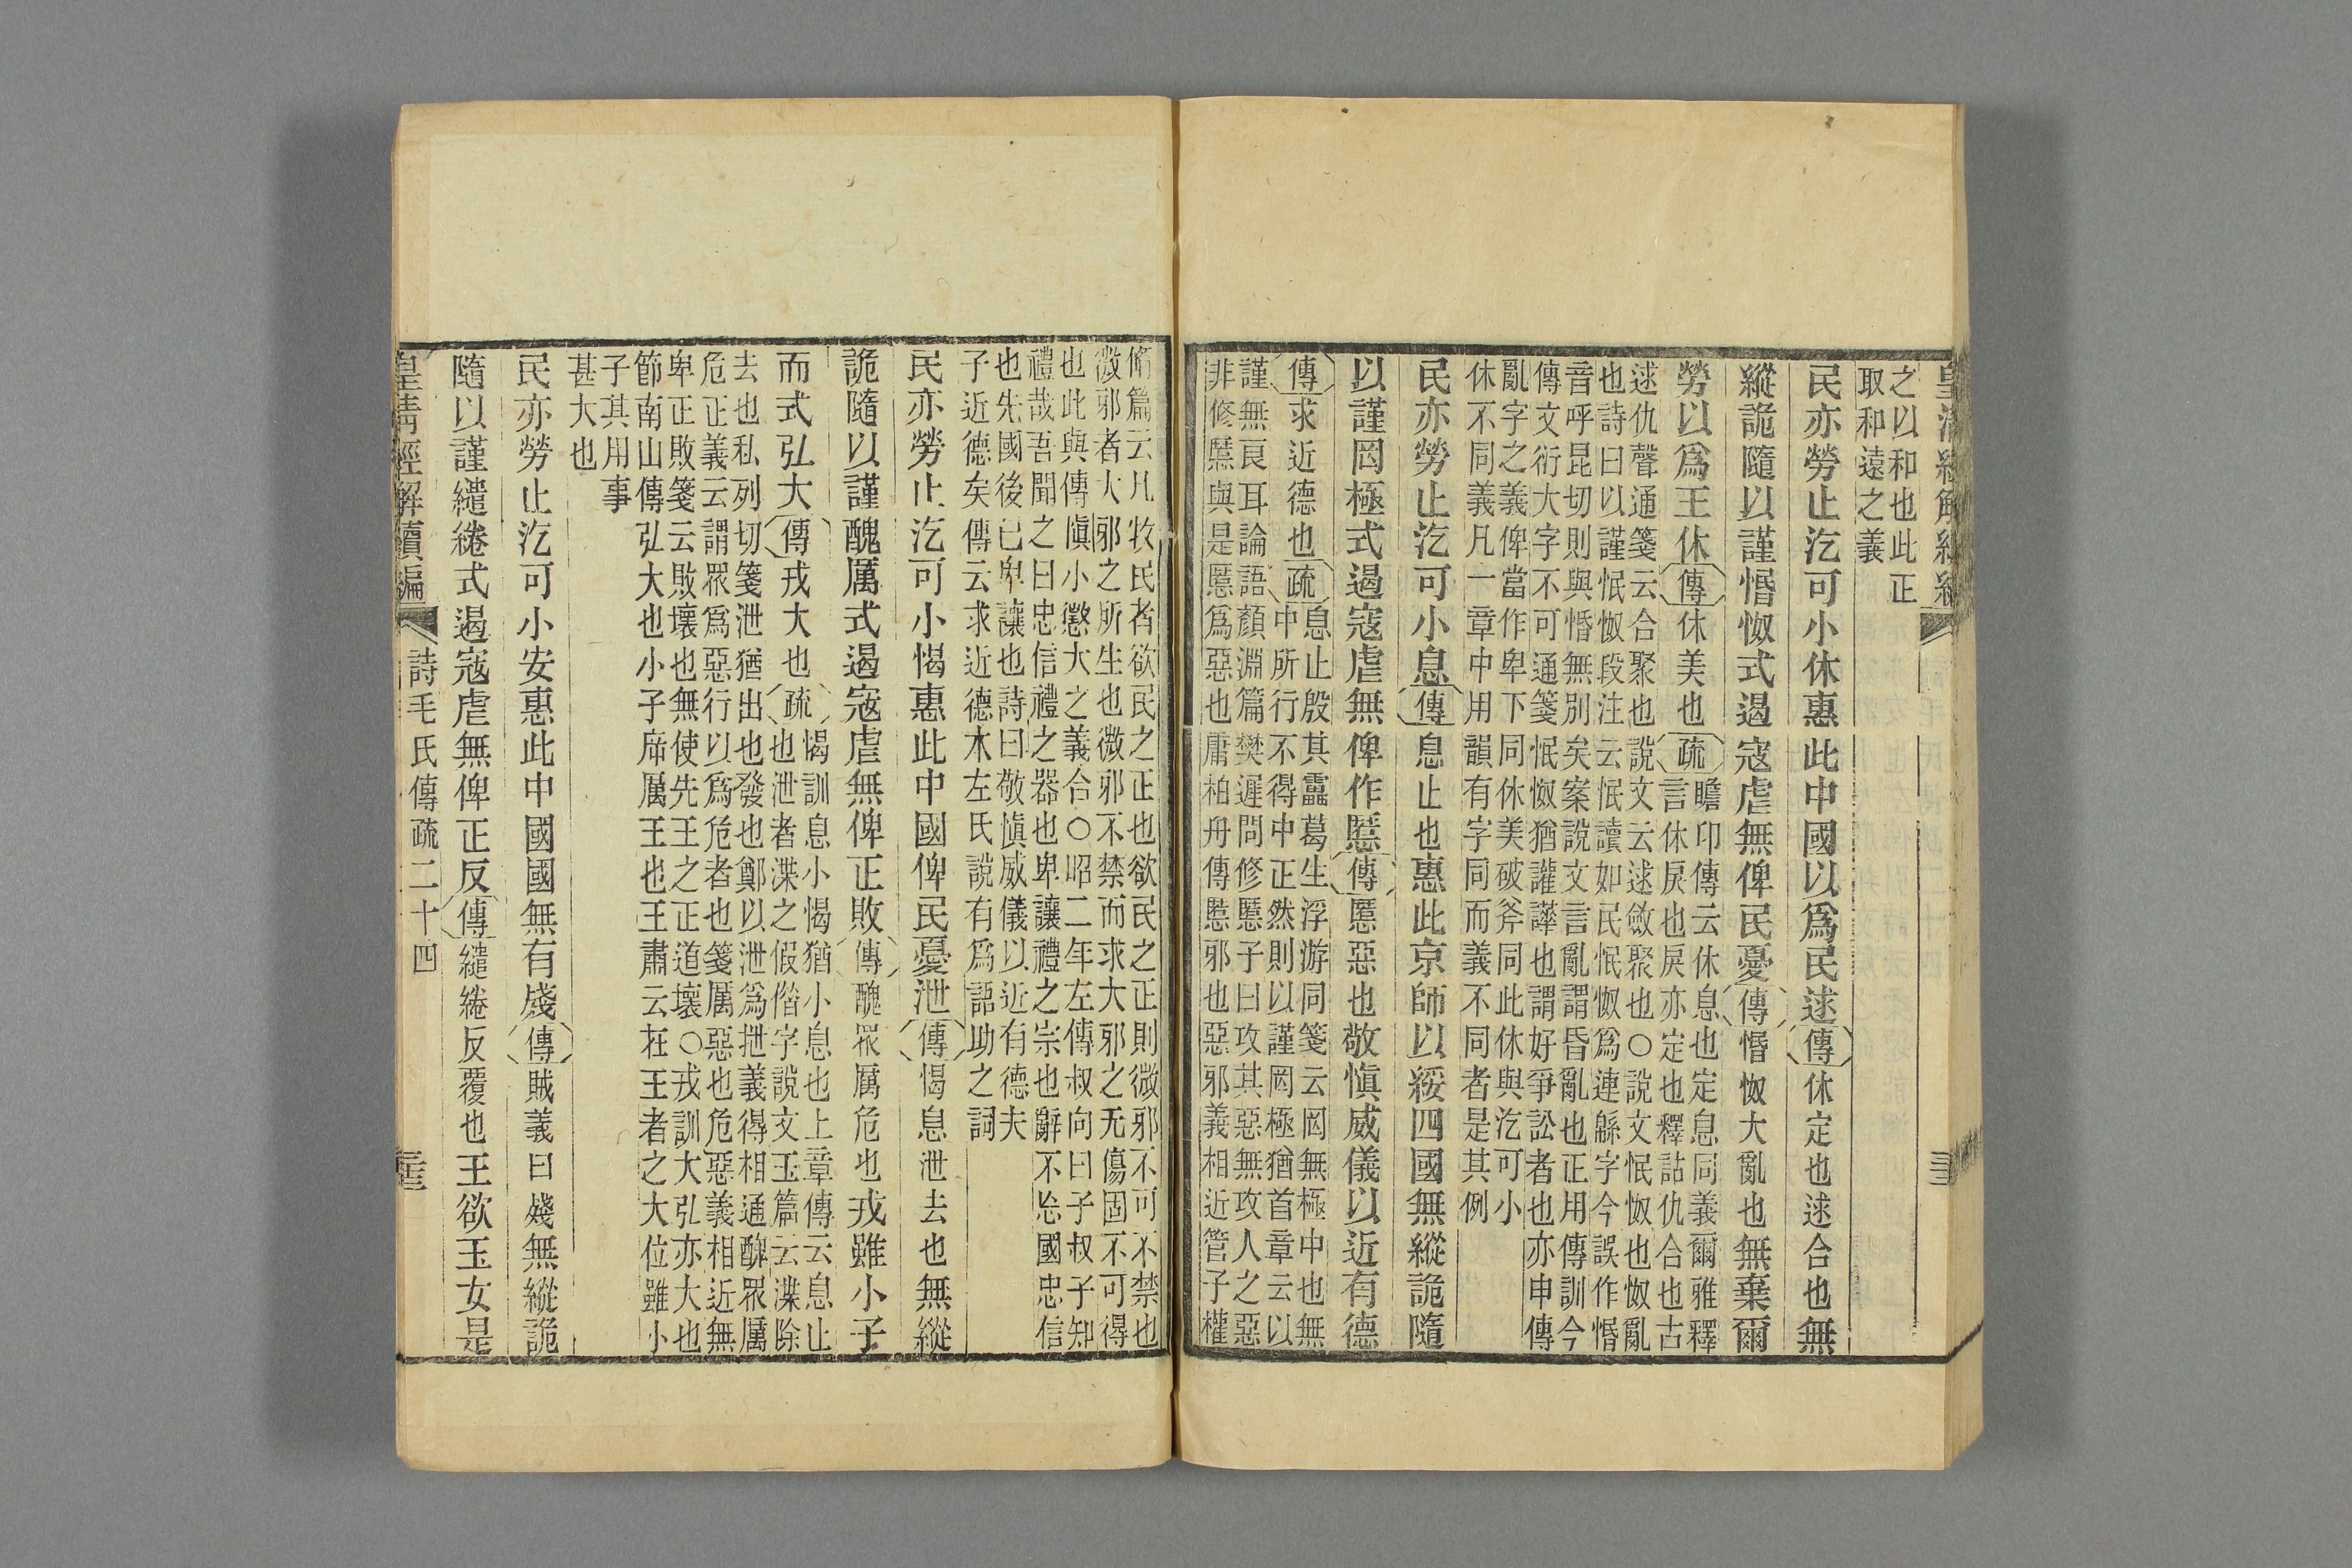 皇清經解續編
之以和也此正
取和遠之義
民亦勞止汔可小休惠此中國以爲民逑傳休定也逑合也無
縱詭隨以謹惽怓式遏寇虐無俾民憂傳惽怓大亂也無棄爾
勞以爲王休傳休美也疏瞻卬傳云休息也定息同義爾雅釋
言休戾也戾亦定也釋詁仇合也古
逑仇聲通箋云合聚也說文云逑斂聚也○說文怋怓也怓亂
也詩曰以謹怋怓段注云怋讀如民怋怓爲連緜字今誤作惽
音呼昆切則與惽無別矣案說文言亂謂昏亂也正用傳訓今
傳文衍大字不可通箋怋怓猶讙譁也謂好爭訟者也亦申傳
亂字之義俾當作卑下同休美破斧同此休與汔可小
休不同義凡一章中用韻有字同而義不同者是其例
民亦勞止汔可小息傳息止也惠此京師以綏四國無縱詭隨
以謹罔極式遏寇虐無俾作慝傳慝惡也敬愼威儀以近有德
傳求近德也疏息止殷其靁葛生浮游同箋云罔無極中也無
中所行不得中正然則以謹罔極猶首章云以
謹無良耳論語顏淵篇樊遲問修慝子曰攻其惡無攻人之惡
非修慝與是慝爲惡也庸柏舟傳慝邪也惡邪義相近管子權
脩篇云凡牧民者欲民之正也欲民之正則微邪不可不禁也
微邪者大邪之所生也微邪不禁而求大邪之无傷國不可得
也此與傳愼小懲大之義合○昭二年左傳叔向曰子叔子知
禮哉吾聞之曰忠信禮之器也卑讓禮之宗也辭不忘國忠信
也先國後己卑讓也詩曰敬愼威儀以近有德夫
子近德矣傳云求近德本左氏說有爲語助之詞
民亦勞止汔可小愒惠此中國俾民憂泄傳愒息泄去也無縱
詭隨以謹醜厲式遏寇虐無俾正敗傳醜眾厲危也戎雖小子
而式弘大傳戎大也疏愒訓息小愒猶小息也上章傳云息止
也泄者渫之假偺字說文玉篇云渫除
去也私列切箋泄猶出也發也鄭以泄爲抴義得相通醜眾厲
危正義云謂眾爲惡行以爲危者也箋厲惡也危惡義相近無
卑正敗箋云敗壞也無使先王之正道壞○戎訓大弘亦大也
節南山傳弘大也小子席厲王也王肅云在王者之大位雖小
子其用事
甚大也
民亦勞止汔可小安惠此中國國無有殘傳賊義曰殘無縱詭
隨以謹繾綣式遏寇虐無俾正反傳繾綣反覆也王欲玉女是
皇淸經解續編
詩毛氏傳疏二十四